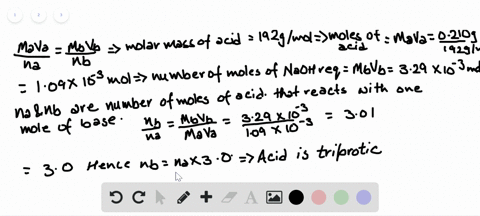 MaVa/na = MbVb/nb => molar mass of acid = 192g/mol => moles of acid = MaVa = 0.210g/192g/m
= 1.09 × 10⁻³ mol => number of moles of NaOH req = MbVb = 3.29 × 10⁻³ m
na & nb are number of moles of acid that reacts with one
mole of base. nb/na = MbVb/MaVa = 3.29 × 10⁻³/1.09 × 10⁻³ = 3.01
= 3.0 Hence nb = na × 3.0 => Acid is triprotic